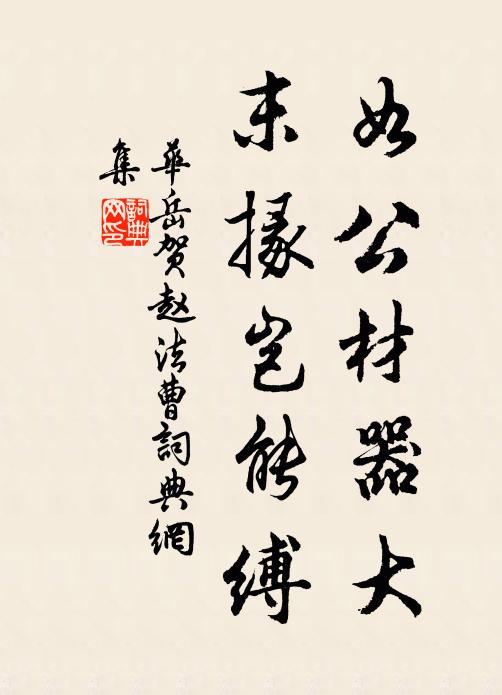 如公材器大
末掾岂能缚
華岳贺赵法曹詞典網
集
詞典網印